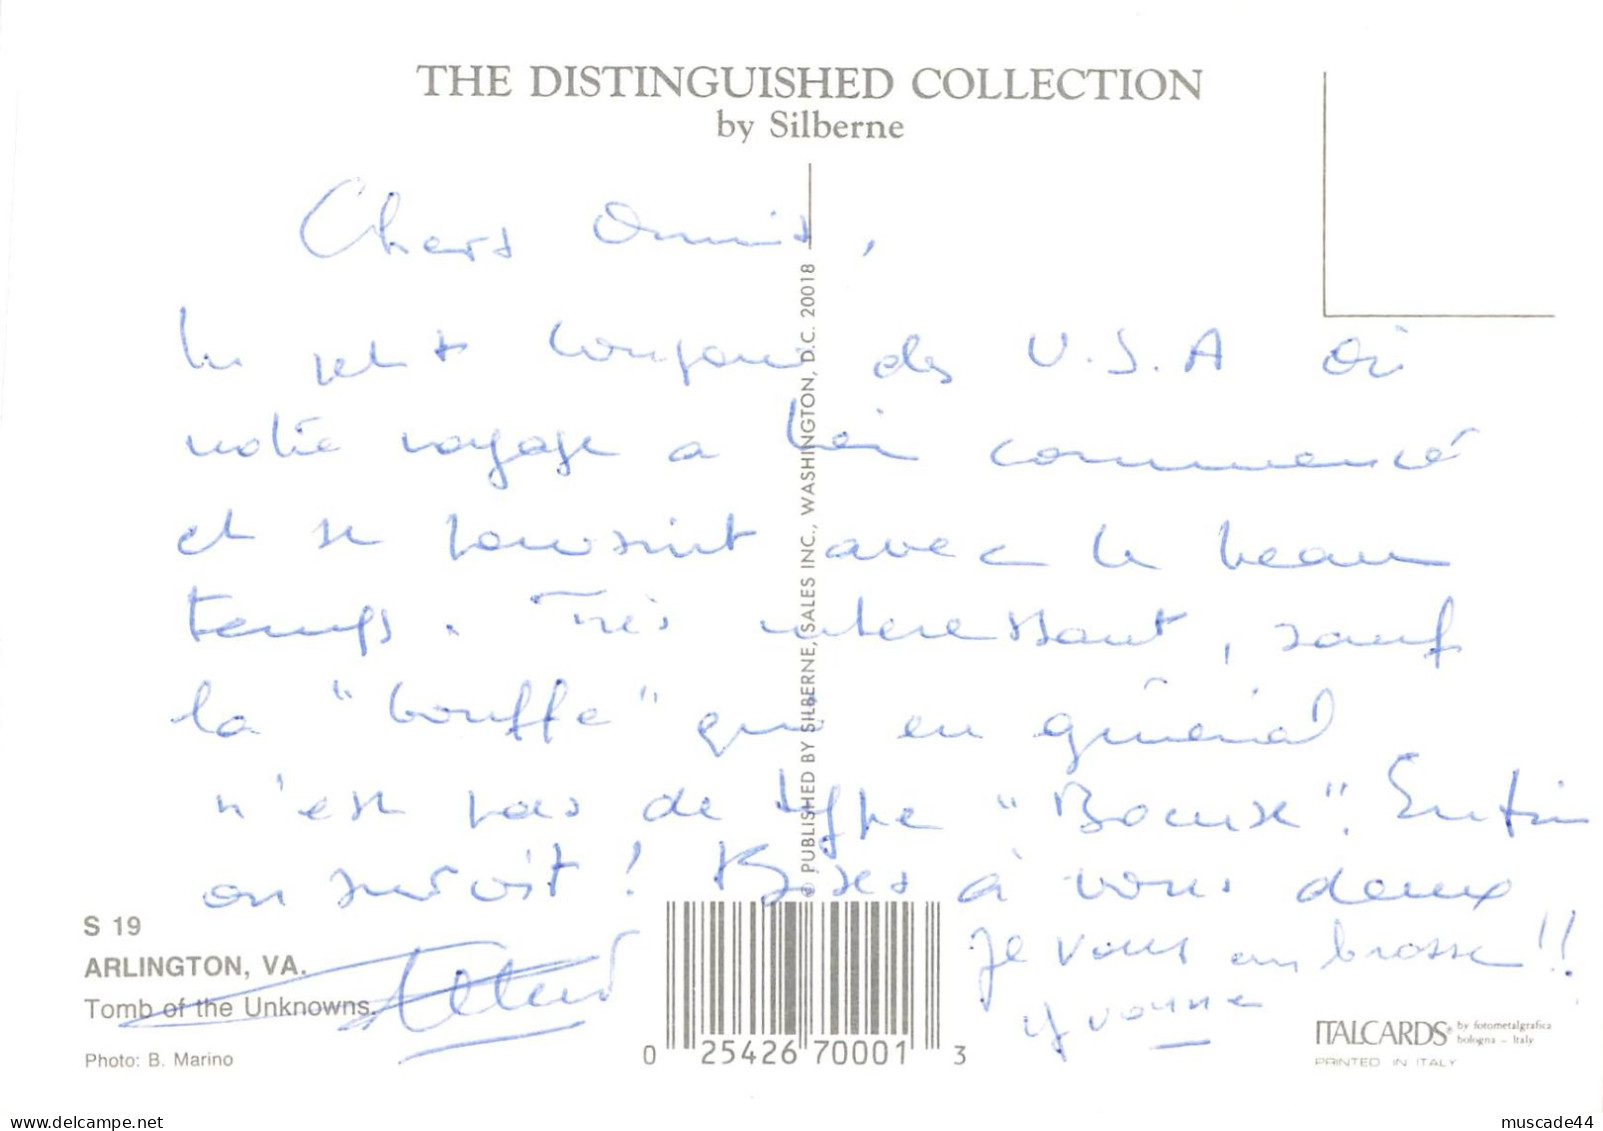 THE DISTINGUISHED COLLECTION
by Silberne
Chers Amis,
Un petit bonjour des U.S.A où
notre voyage a bien commencé
et se poursuit avec le beau
temps. Très interessant, sauf
la "bouffe" qui en général
n'est pas de type "Bocuse". Enfin
on survit! Bises à vous deux
Je vous embrasse!!
Yvonne
© PUBLISHED BY SILBERNE, SALES INC., WASHINGTON, D.C. 20018
S 19
ARLINGTON, VA.
Tomb of the Unknowns.
Photo: B. Marino
0 25426 70001 3
ITALCARDS® by fotometalgrafica
bologna - Italy
PRINTED IN ITALY
delcampe.net
muscade44